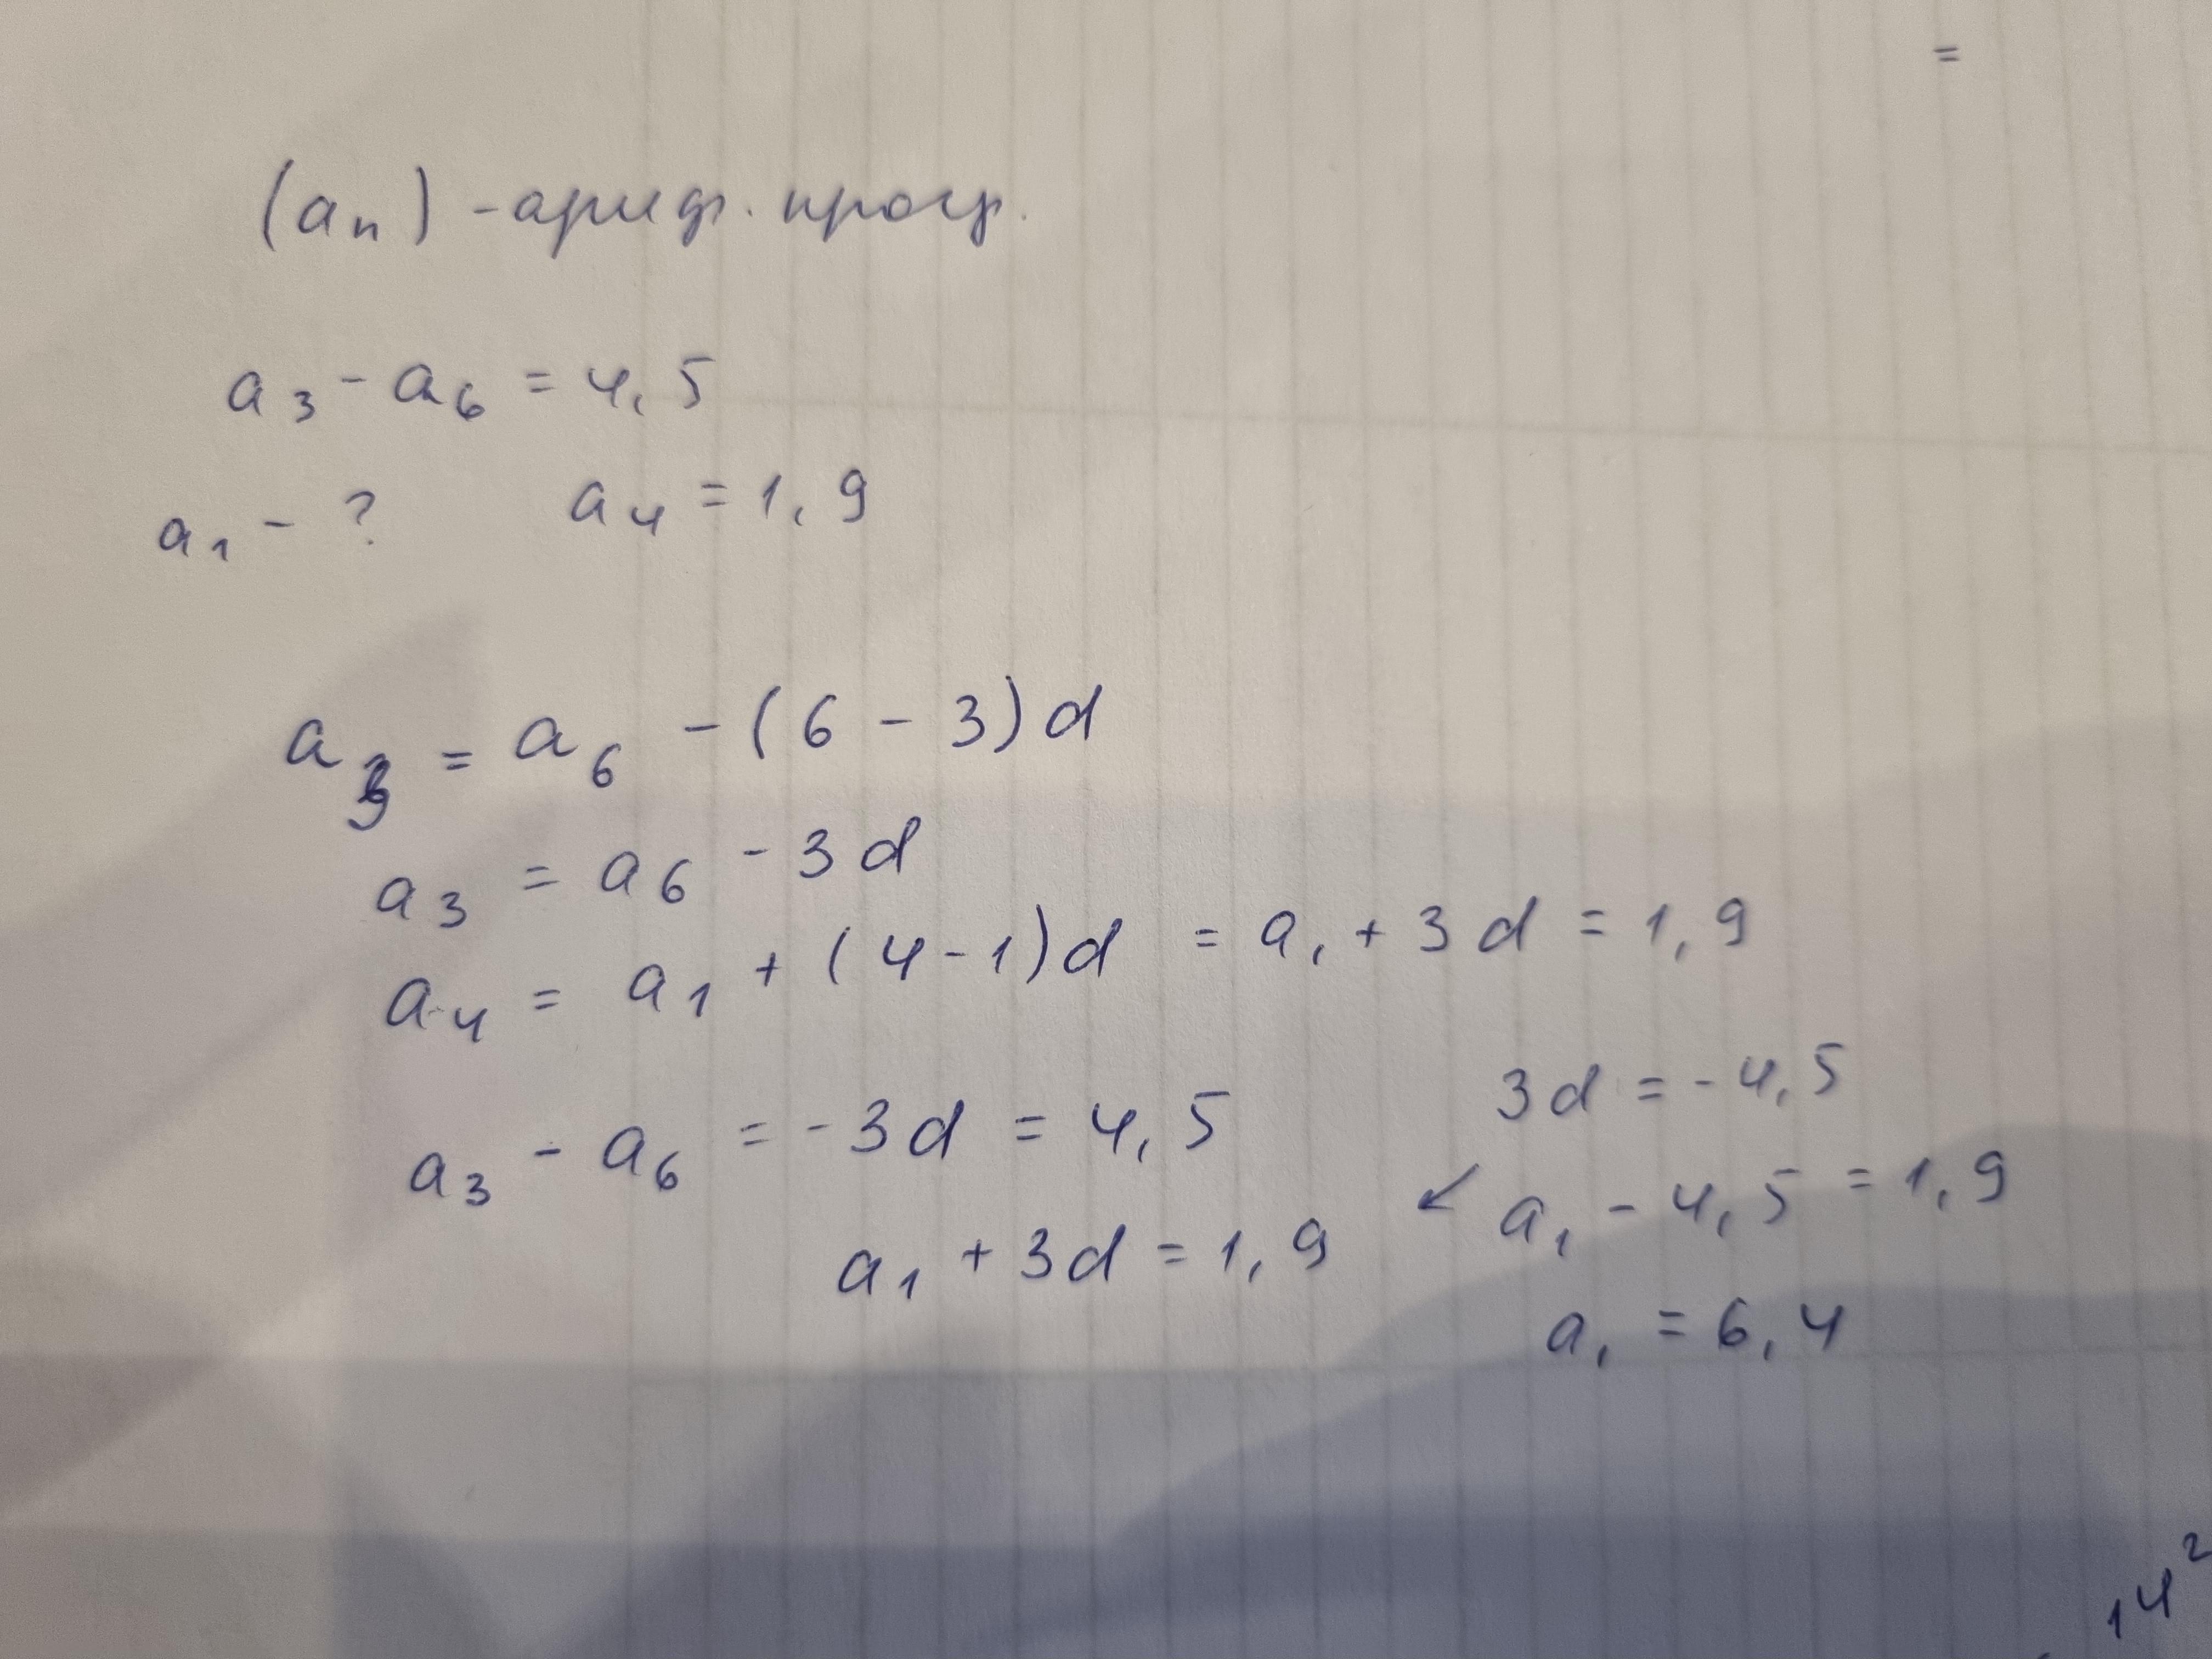 =
(aₙ) - ариф. прогр.
a₃ - a₆ = 4,5
a₁ - ? a₄ = 1,9
a₃ = a₆ - (6 - 3)d
a₃ = a₆ - 3d
a₄ = a₁ + (4 - 1)d = a₁ + 3d = 1,9
a₃ - a₆ = -3d = 4,5
3d = -4,5
a₁ + 3d = 1,9
↙ a₁ - 4,5 = 1,9
a₁ = 6,4
14²